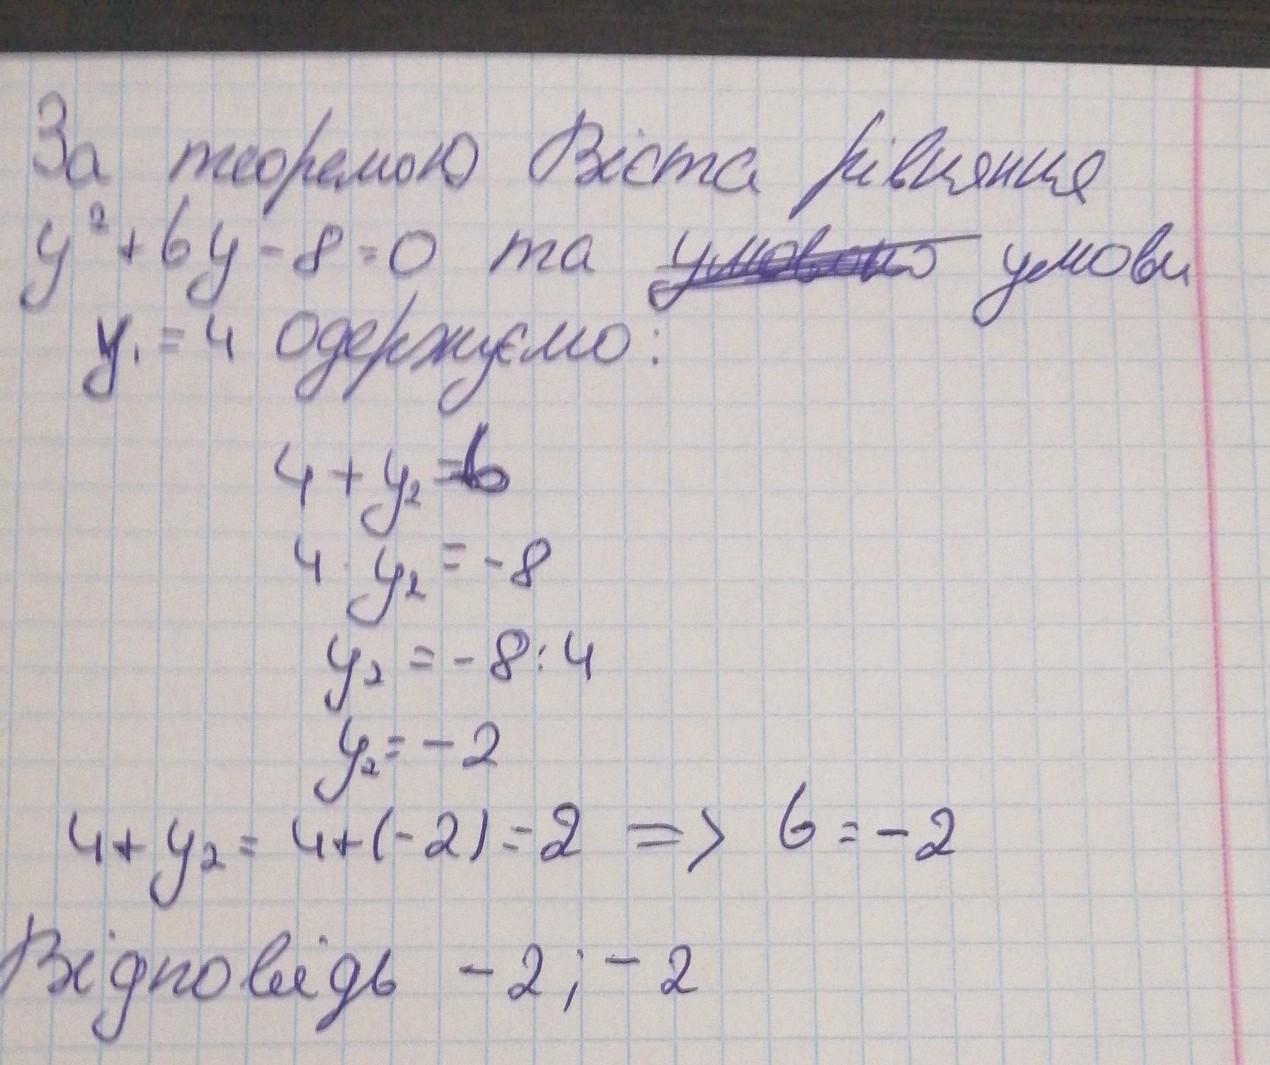 За теоремою Вієта рівняння
y² + by - 8 = 0 та умовою умови
y₁ = 4 одержуємо:
4 + y₂ = b
4 · y₂ = -8
y₂ = -8 : 4
y₂ = -2
4 + y₂ = 4 + (-2) = 2 => b = -2
Відповідь -2; -2